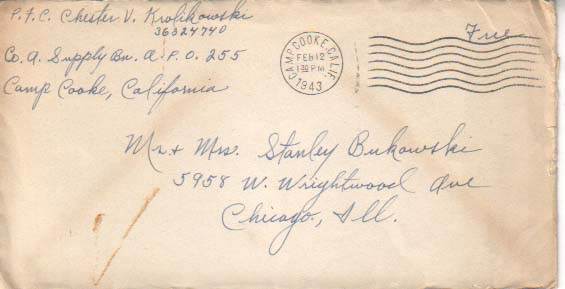 P.F.C. Chester V. Krolikowski
36024740
Co. A. Supply Bn. A.P.O. 255
Camp Cooke, California
CAMP COOKE, CALIF.
FEB 12
1 30 PM
1943
Free
Mr. + Mrs. Stanley Bukowski
5958 W. Wrightwood Ave
Chicago, Ill.